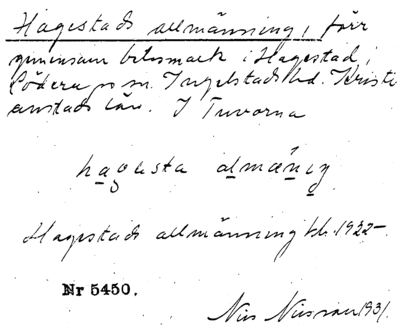 Hagestads allmänning, förr
gemensam betesmark i Hagestad,
Löderups sn. Ingelstads hd. Kristi
anstads län. I Tuvorna
hagesta almäniŋ
Hagestads allmänning kb. 1922–
Nr 5450.
Nils Nilsson 1931.